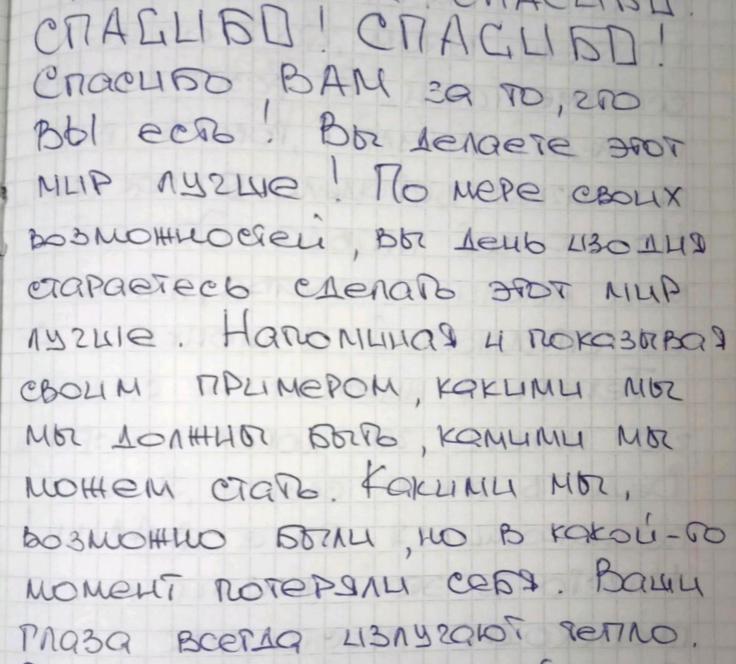 СПАСИБО! СПАСИБО!
Спасибо ВАМ за то, что
вы есть! Вы делаете этот
мир лучше! По мере своих
возможностей, вы день изо дня
стараетесь сделать этот мир
лучше. Напоминая и показывая
своим примером, какими мы
мы должны быть, камими мы
можем стать. Какими мы,
возможно были, но в какой-то
момент потеряли себя. Ваши
глаза всегда излучают тепло.